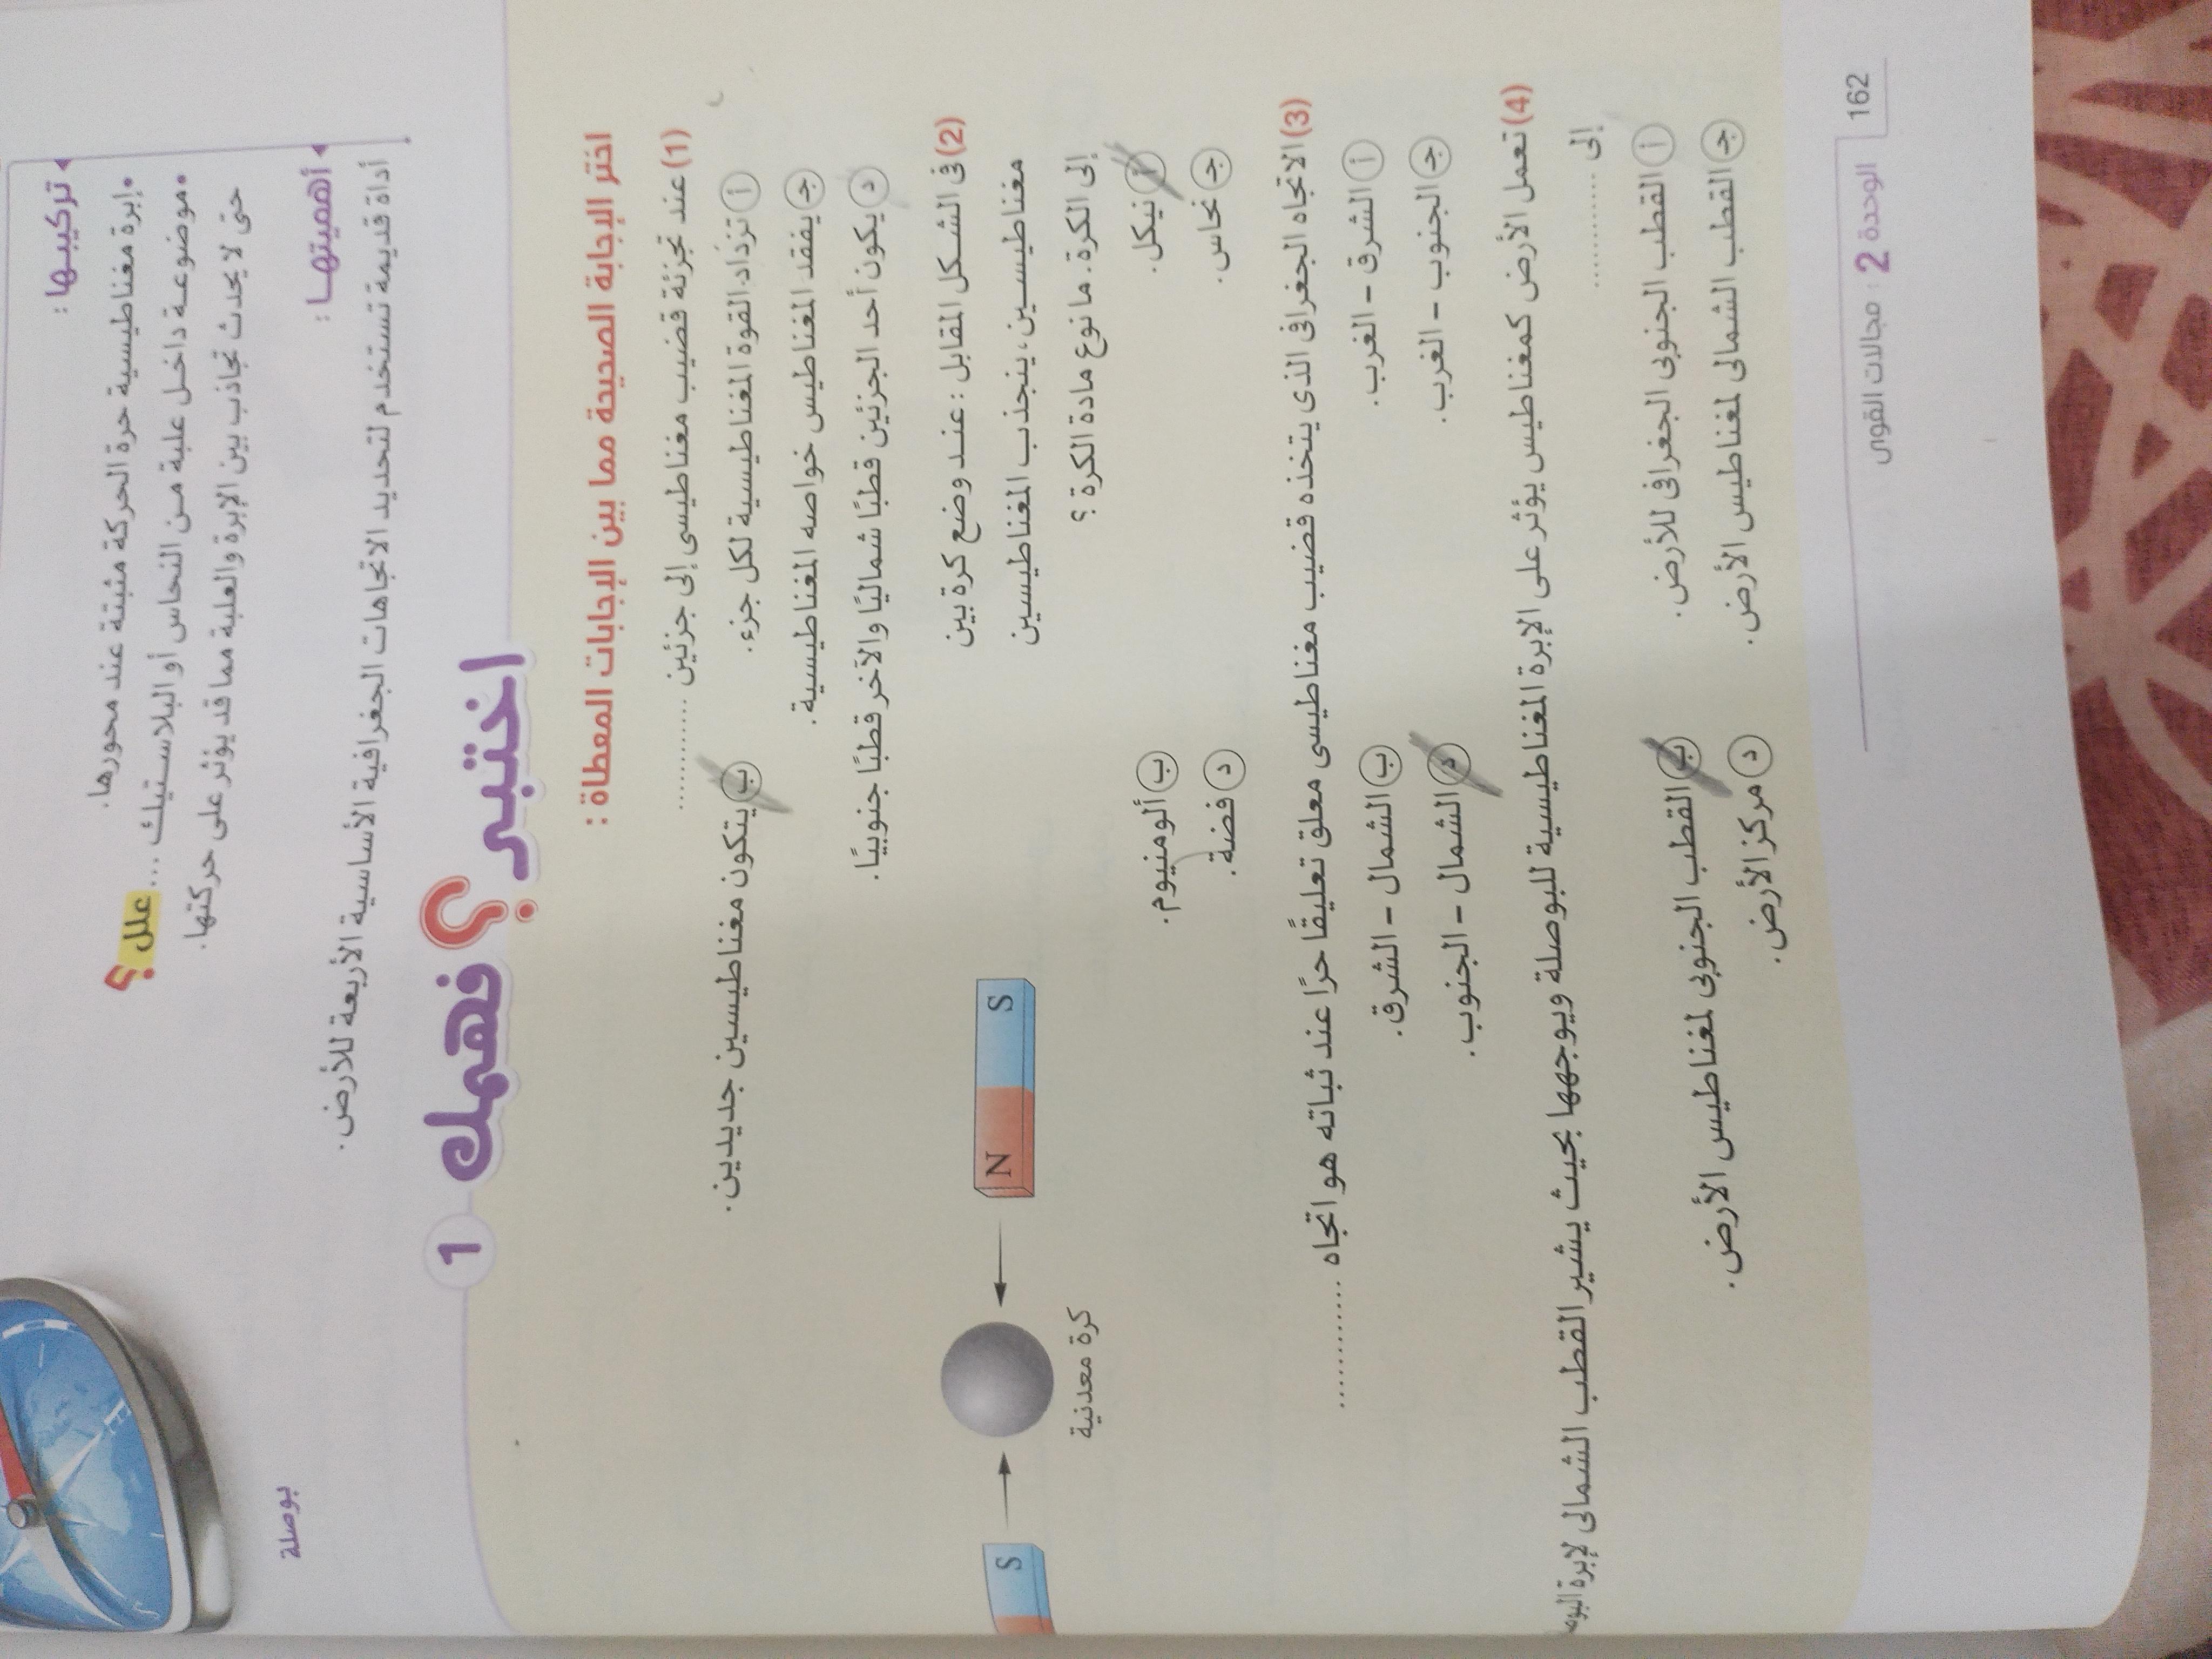 تركيبها :
• إبرة مغناطيسية حرة الحركة مثبتة عند محورها.
• موضوعة داخل علبة من النحاس أو البلاستيك ... علل ؟
حتى لا يحدث تجاذب بين الإبرة والعلبة مما قد يؤثر على حركتها.
بوصلة
أهميتها :
أداة قديمة تستخدم لتحديد الاتجاهات الجغرافية الأساسية الأربعة للأرض.
اختبر فهمك ؟ 1
اختر الإجابة الصحيحة مما بين الإجابات المعطاة :
(1) عند تجزئة قضيب مغناطيسى إلى جزئين ............
أ تزداد القوة المغناطيسية لكل جزء.
ب يتكون مغناطيسين جديدين.
جـ يفقد المغناطيس خواصه المغناطيسية.
د يكون أحد الجزئين قطبًا شماليًا والآخر قطبًا جنوبيًا.
(2) فى الشكل المقابل : عند وضع كرة بين
مغناطيسين، ينجذب المغناطيسين
إلى الكرة. ما نوع مادة الكرة ؟
S
N S
كرة معدنية
أ نيكل.
ب ألومنيوم.
جـ نحاس.
د فضة.
(3) الاتجاه الجغرافى الذى يتخذه قضيب مغناطيسى معلق تعليقًا حرًا عند ثباته هو اتجاه ............
أ الشرق - الغرب.
ب الشمال - الشرق.
جـ الجنوب - الغرب.
د الشمال - الجنوب.
(4) تعمل الأرض كمغناطيس يؤثر على الإبرة المغناطيسية للبوصلة ويوجهها بحيث يشير القطب الشمالى لإبرة
إلى ............
أ القطب الجنوبى الجغرافى للأرض.
ب القطب الجنوبى لمغناطيس الأرض.
جـ القطب الشمالى لمغناطيس الأرض.
د مركز الأرض.
162 الوحدة 2 : مجالات القوى